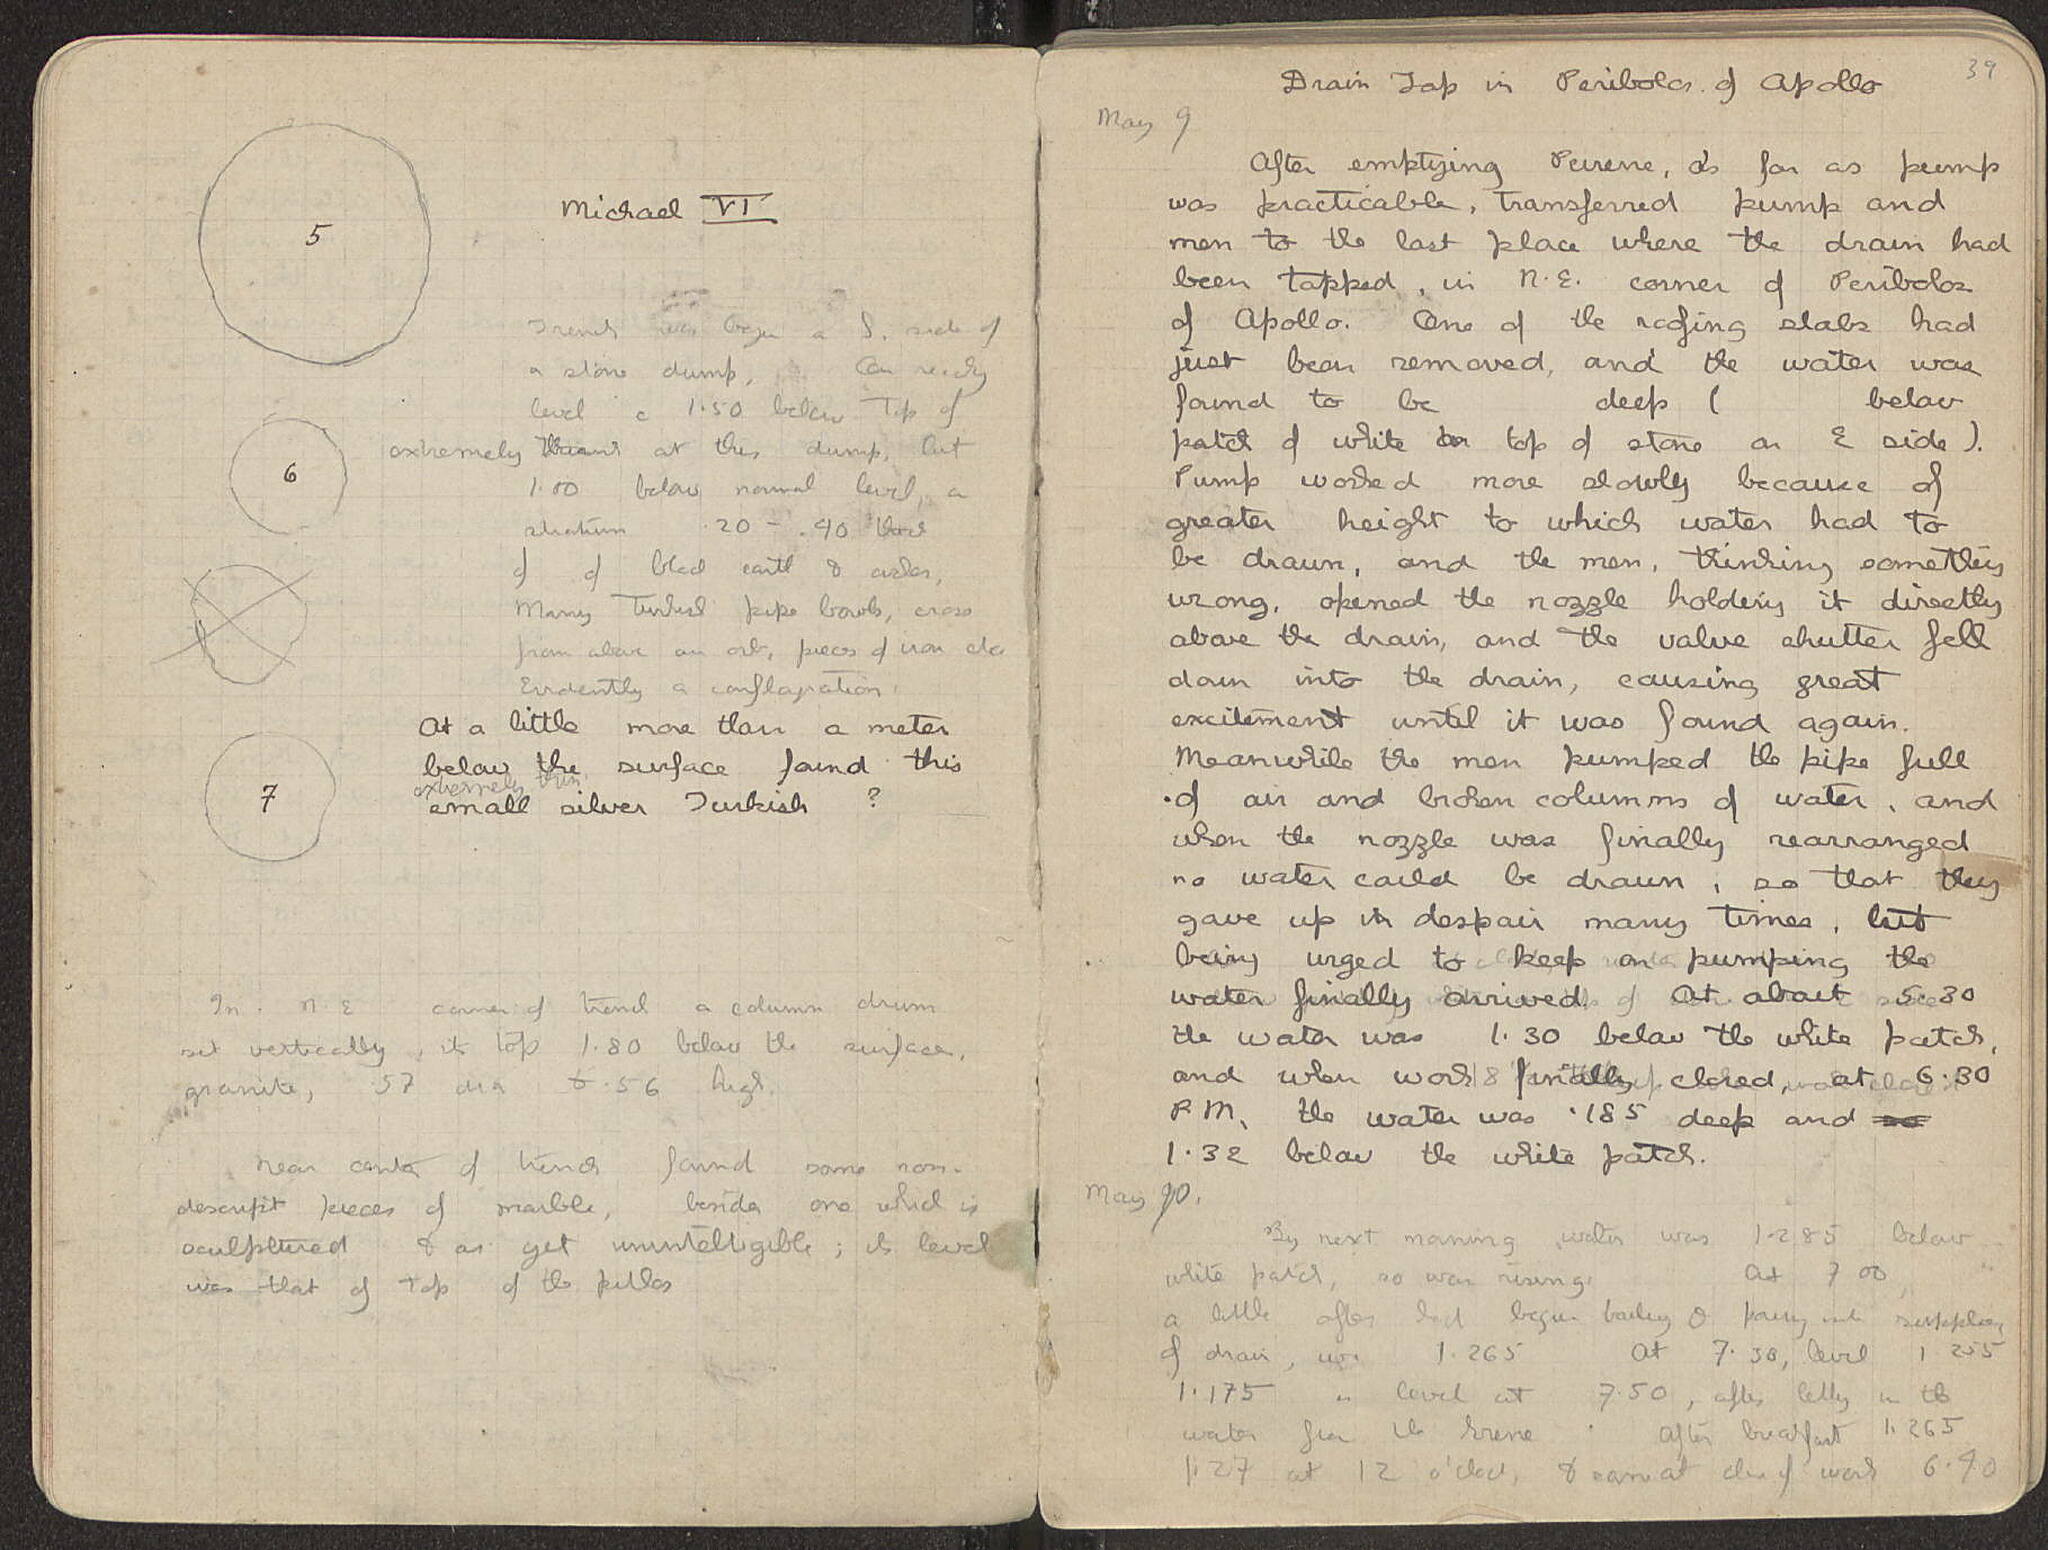 5
Michael VI
Trench was begun a S. side of
a stone dump,
level c 1.50 below Top of
extremely at this dump, but
6
1.00 below normal level, a
stratum .20 - .40
of of black earth &
Many Turkish pipe bowls, cross
from above an orb, pieces of iron etc
Evidently a conflagration.
At a little more than a meter
below the surface found this
extremely thin
7
small silver Turkish ?
In N.E corner of trench a column drum
set vertically, its top 1.80 below the surface,
granite, .57 dia & .56 high.
Near center of trench found some non-
descript pieces of marble, besides one which is
sculptured & as yet unintelligible; its level
was that of top of the pillar
39
Drain Tap in Peribolos of Apollo
May 9
After emptying Peirene, as far as pump
was practicable, transferred pump and
men to the last place where the drain had
been tapped, in N.E. corner of Peribolos
of Apollo. One of the roofing slabs had
just been removed, and the water was
found to be deep ( below
patch of white on top of stone on E side).
Pump worked more slowly because of
greater height to which water had to
be drawn, and the men, thinking something
wrong, opened the nozzle holding it directly
above the drain, and the valve shutter fell
down into the drain, causing great
excitement until it was found again.
Meanwhile the men pumped the pipe full
of air and broken columns of water, and
when the nozzle was finally rearranged
no water could be drawn, so that they
gave up in despair many times, but
being urged to keep on pumping the
water finally arrived. At about 5.30
the water was 1.30 below the white patch,
and when work finally closed, at 6.30
P.M., the water was .185 deep and
1.32 below the white patch.
May 10.
By next morning water was 1.285 below
white patch, so was rising. At 7 00,
a little after had begun bailing &
of drain, was 1.265 At 7.30, level 1 255
1.175 " level at 7.50, after letting in the
water from the After breakfast 1.265
1.27 at 12 o'clock, & same at close of work 6.40